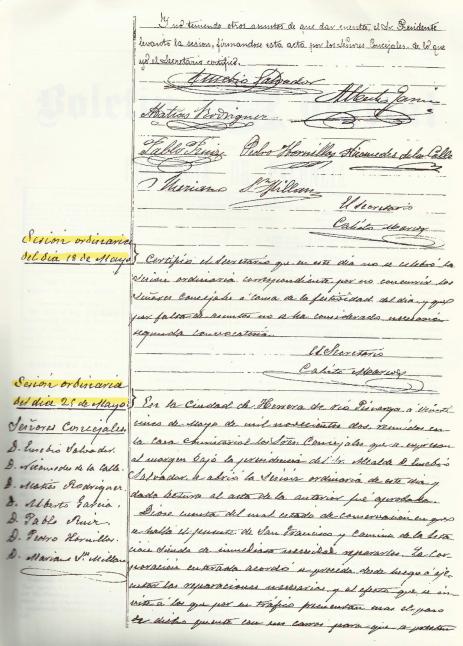 Y no teniendo otros asuntos de que dar cuenta, el Sr. Presidente
levantó la sesion, firmandose esta acta por los Señores Concejales, de lo que
yo el Secretario certifico.
Eusebio Salvador
Alberto Garcia
Matias Rodriguez
Pablo Ruiz
Pedro Hornillos
Nicomedes de la Calle
Mariano Sn Millan
El Secretario
Sesion ordinaria
del dia 18 de Mayo
Certifico el Secretario que en este dia no se celebró la
sesion ordinaria correspondiente, por no concurrir los
Señores Concejales á causa de la festividad del dia y que
por falta de asuntos no se ha considerado necesaria
segunda convocatoria.
El Secretario
Sesion ordinaria
del dia 25 de Mayo
Señores Concejales
D. Eusebio Salvador.
D. Nicomedes de la Calle.
D. Matias Rodriguez
D. Alberto Garcia.
D. Pablo Ruiz.
D. Pedro Hornillos.
D. Mariano Sn Millan
En la Ciudad de Herrera de rio Pisuerga á veinte
cinco de Mayo de mil novecientos dos reunidos en
la casa Consistorial los Sres Concejales que se expresan
al margen bajo la presidencia del Sr. Alcalde D. Eusebio
Salvador se abrió la Sesion ordinaria de este dia y
dada lectura al acta de la anterior fué aprobada.
Diose cuenta del mal estado de conservacion en que
se halla el puente de San Francisco y camino de la
siendo de inmediata necesidad repararlos. La Cor
poracion enterada acordó se proceda desde luego á eje
cutar las reparaciones necesarias y al efecto que se in
vite á los que por su tráfico frecuentan mas el paso
de dicho puente con sus carros para que se presten